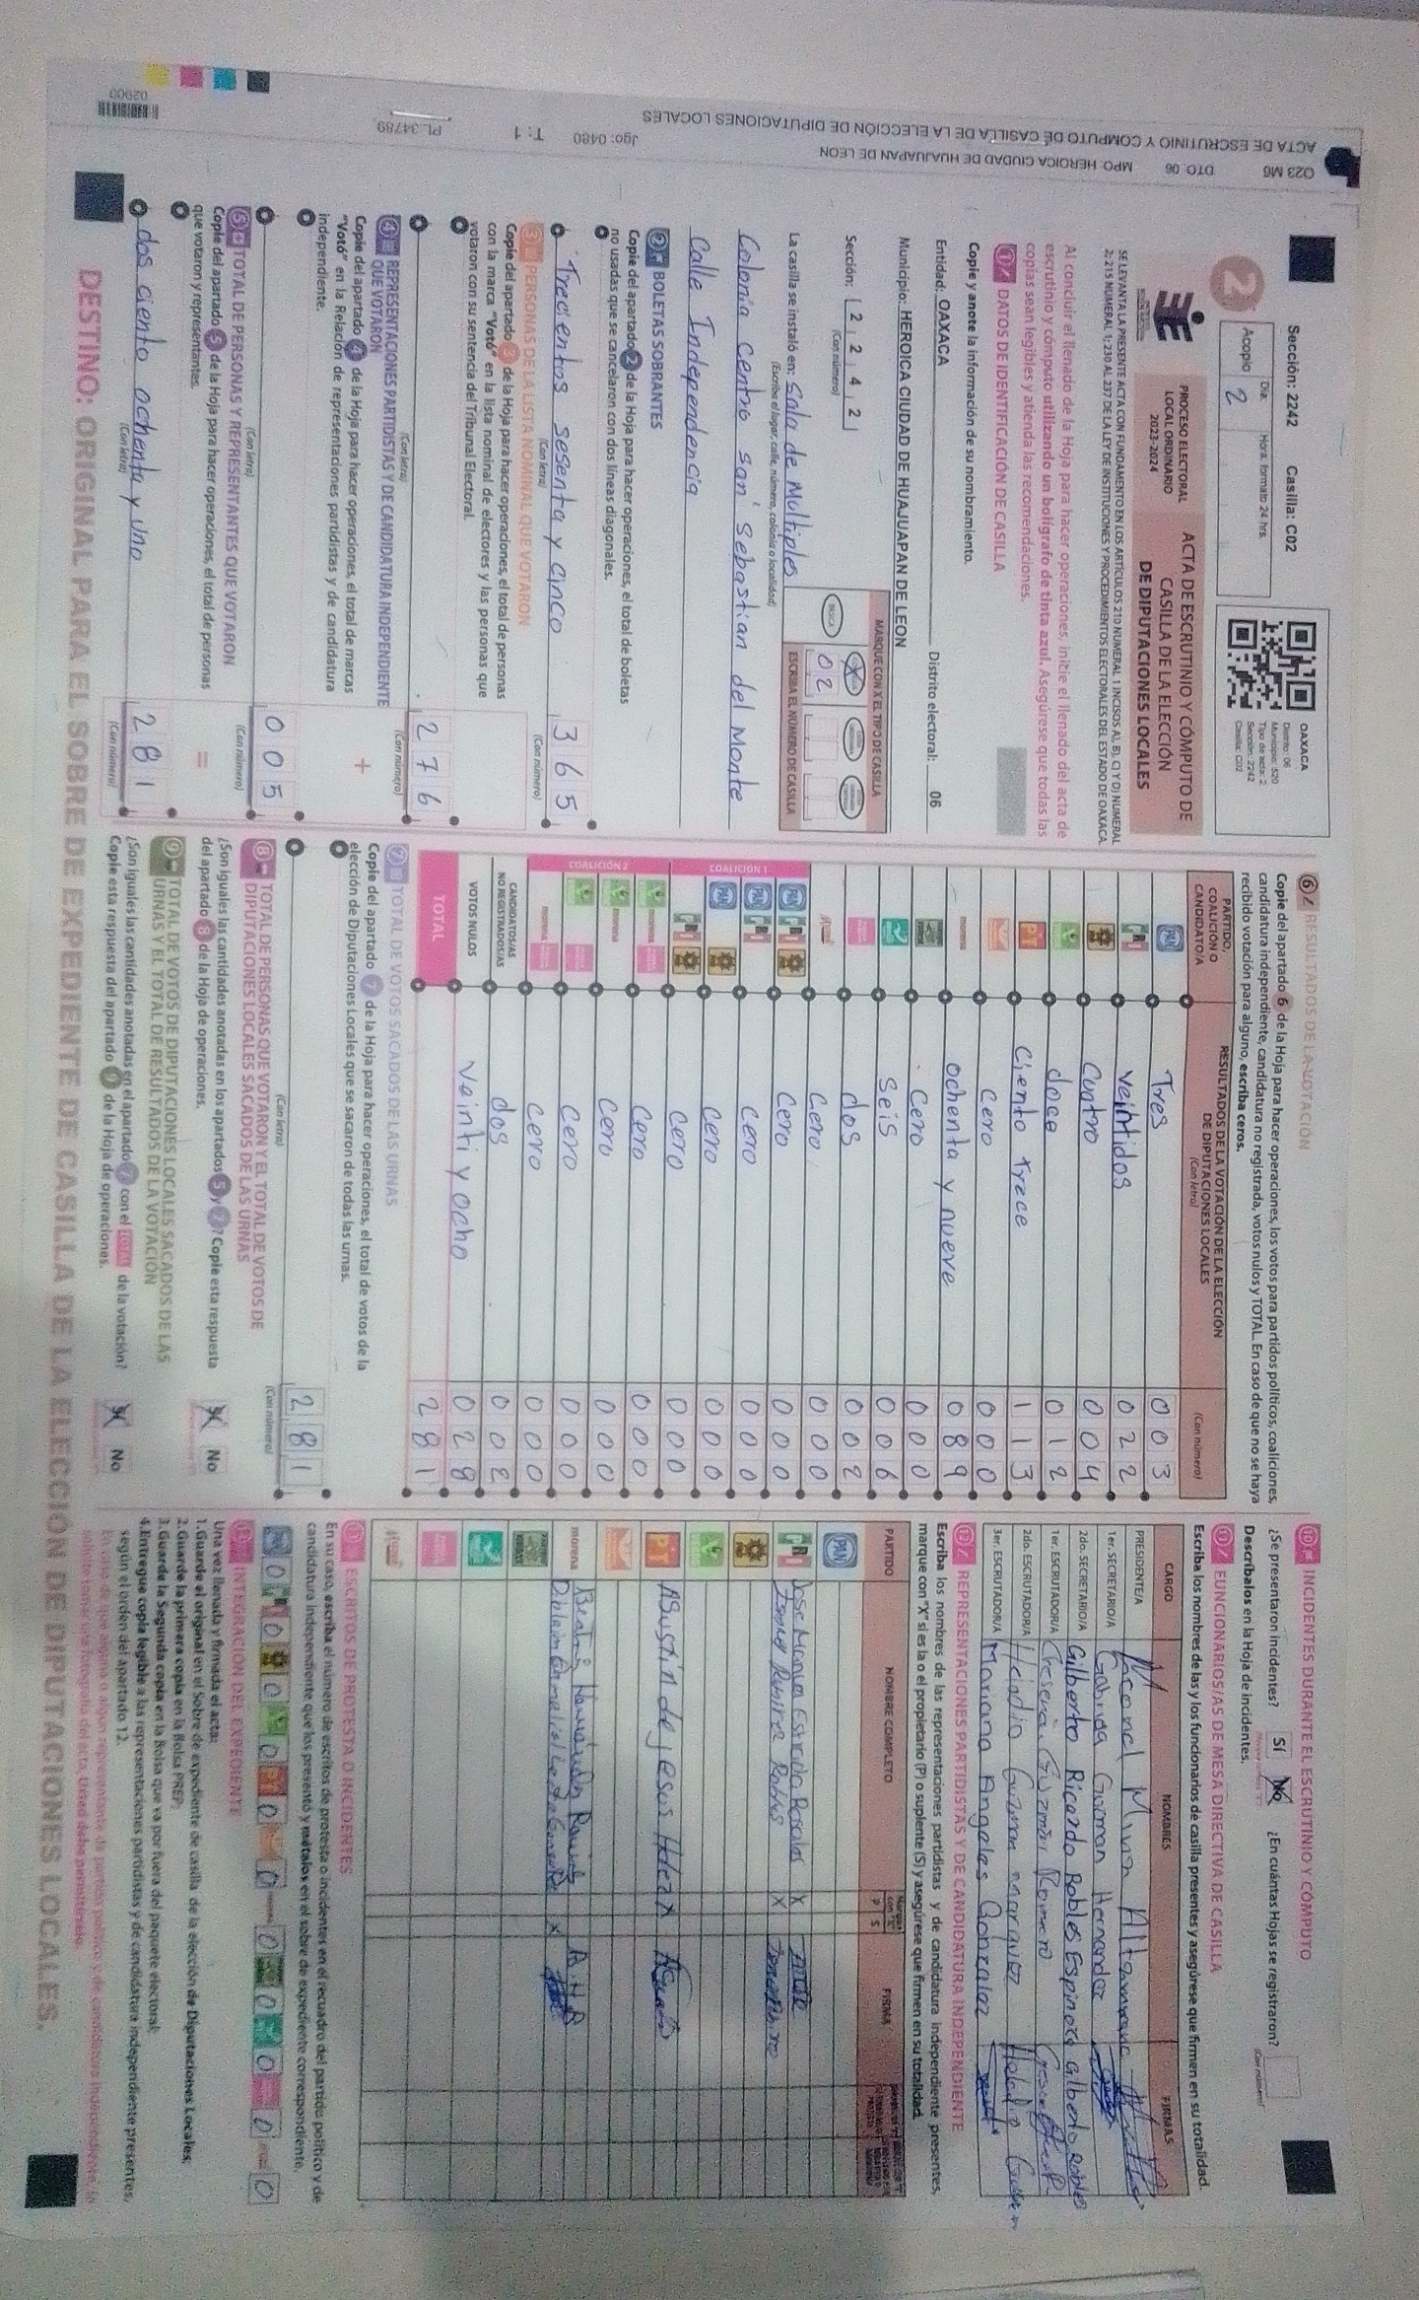 O23 M6 DTO. 06 MPO: HEROICA CIUDAD DE HUAJUAPAN DE LEON Jgo: 0480 T: 1 PL.:34789
ACTA DE ESCRUTINIO Y CÓMPUTO DE CASILLA DE LA ELECCIÓN DE DIPUTACIONES LOCALES
02900
Sección: 2242 Casilla: C02
2
Día: Hora, formato 24 hrs.
Acopio 2
OAXACA
Distrito: 06
Municipio: 520
Tipo de acta: 2
Sección: 2242
Casilla: C02
PROCESO ELECTORAL
LOCAL ORDINARIO
2023-2024
ACTA DE ESCRUTINIO Y CÓMPUTO DE
CASILLA DE LA ELECCIÓN
DE DIPUTACIONES LOCALES
SE LEVANTA LA PRESENTE ACTA CON FUNDAMENTO EN LOS ARTÍCULOS 210 NUMERAL 1 INCISOS A), B), C) Y D) NUMERAL
2; 215 NUMERAL 1; 230 AL 237 DE LA LEY DE INSTITUCIONES Y PROCEDIMIENTOS ELECTORALES DEL ESTADO DE OAXACA.
Al concluir el llenado de la Hoja para hacer operaciones, inicie el llenado del acta de
escrutinio y cómputo utilizando un bolígrafo de tinta azul. Asegúrese que todas las
copias sean legibles y atienda las recomendaciones.
1 DATOS DE IDENTIFICACIÓN DE CASILLA
Copie y anote la información de su nombramiento.
Entidad: OAXACA Distrito electoral: 06
Municipio: HEROICA CIUDAD DE HUAJUAPAN DE LEON
Sección: 2 2 4 2
(Con número)
MARQUE CON X EL TIPO DE CASILLA
BÁSICA X
02
ESCRIBA EL NÚMERO DE CASILLA
La casilla se instaló en: Sala de Multiples
(Escriba el lugar, calle, número, colonia o localidad)
Colonia Centro san Sebastian del Monte
Calle Independencia
2 BOLETAS SOBRANTES
Copie del apartado 2 de la Hoja para hacer operaciones, el total de boletas
no usadas que se cancelaron con dos líneas diagonales.
Trecientos sesenta y cinco 365
(Con letra) (Con número)
3 PERSONAS DE LA LISTA NOMINAL QUE VOTARON
Copie del apartado 3 de la Hoja para hacer operaciones, el total de personas
con la marca "Votó" en la lista nominal de electores y las personas que
votaron con su sentencia del Tribunal Electoral.
276
(Con letra) (Con número)
4 REPRESENTACIONES PARTIDISTAS Y DE CANDIDATURA INDEPENDIENTE
QUE VOTARON
+
Copie del apartado 4 de la Hoja para hacer operaciones, el total de marcas
"Votó" en la Relación de representaciones partidistas y de candidatura
independiente.
005
(Con letra) (Con número)
5 TOTAL DE PERSONAS Y REPRESENTANTES QUE VOTARON
=
Copie del apartado 5 de la Hoja para hacer operaciones, el total de personas
que votaron y representantes.
dos ciento ochenta y uno 281
(Con letra) (Con número)
6 RESULTADOS DE LA VOTACIÓN
Copie del apartado 6 de la Hoja para hacer operaciones, los votos para partidos políticos, coaliciones,
candidatura independiente, candidatura no registrada, votos nulos y TOTAL. En caso de que no se haya
recibido votación para alguno, escriba ceros.
PARTIDO, COALICIÓN O CANDIDATO/A
RESULTADOS DE LA VOTACIÓN DE LA ELECCIÓN
DE DIPUTACIONES LOCALES
(Con letra) (Con número)
PAN Tres 003
PRI veintidos 022
Cuatro 004
doce 012
PT Ciento trece 113
Cero 000
morena ochenta y nueve 089
Cero 000
Seis 006
dos 002
Cero 000
COALICIÓN 1
PAN PRI Cero 000
PAN PRI Cero 000
PAN Cero 000
PRI Cero 000
COALICIÓN 2
morena Cero 000
morena Cero 000
Cero 000
morena Cero 000
CANDIDATOS/AS NO REGISTRADOS/AS dos 002
VOTOS NULOS Veinti y ocho 028
TOTAL 281
7 TOTAL DE VOTOS SACADOS DE LAS URNAS
Copie del apartado 7 de la Hoja para hacer operaciones, el total de votos de la
elección de Diputaciones Locales que se sacaron de todas las urnas.
281
(Con letra) (Con número)
8 TOTAL DE PERSONAS QUE VOTARON Y EL TOTAL DE VOTOS DE
DIPUTACIONES LOCALES SACADOS DE LAS URNAS
¿Son iguales las cantidades anotadas en los apartados 5 y 7? Copie esta respuesta
del apartado 8 de la Hoja de operaciones. No
9 TOTAL DE VOTOS DE DIPUTACIONES LOCALES SACADOS DE LAS
URNAS Y EL TOTAL DE RESULTADOS DE LA VOTACIÓN
¿Son iguales las cantidades anotadas en el apartado 7 con el TOTAL de la votación?
Copie esta respuesta del apartado 9 de la Hoja de operaciones. No
10 INCIDENTES DURANTE EL ESCRUTINIO Y CÓMPUTO
¿Se presentaron incidentes? Sí No ¿En cuántas Hojas se registraron?
(Con número)
Descríbalos en la Hoja de incidentes.
11 FUNCIONARIOS/AS DE MESA DIRECTIVA DE CASILLA
Escriba los nombres de las y los funcionarios de casilla presentes y asegúrese que firmen en su totalidad.
CARGO NOMBRES FIRMAS
PRESIDENTE/A
1er. SECRETARIO/A Gabriela Guzman Hernandez
2do. SECRETARIO/A Gilberto Ricardo Robles Espinoza Gilberto Robles
1er. ESCRUTADOR/A Guzmán Romero
2do. ESCRUTADOR/A Heladio Guzman Marquez Heladio Guzman
3er. ESCRUTADOR/A Mariana Angeles Gonzalez
12 REPRESENTACIONES PARTIDISTAS Y DE CANDIDATURA INDEPENDIENTE
Escriba los nombres de las representaciones partidistas y de candidatura independiente presentes,
marque con "X" si es la o el propietario (P) o suplente (S) y asegúrese que firmen en su totalidad.
PARTIDO NOMBRE COMPLETO P S FIRMA
PAN
PRI X
X
PT Agustin de jesus
morena Beatriz Hernandez A H R
X
13 ESCRITOS DE PROTESTA O INCIDENTES
En su caso, escriba el número de escritos de protesta o incidentes en el recuadro del partido político y de
candidatura independiente que los presentó y métalos en el sobre de expediente correspondiente.
PAN 0 PRI 0 0 0 PT 0 0 0 0 0 0 0
14 INTEGRACIÓN DEL EXPEDIENTE
Una vez llenada y firmada el acta:
1. Guarde el original en el Sobre de expediente de casilla de la elección de Diputaciones Locales;
2. Guarde la primera copia en la Bolsa PREP;
3. Guarde la Segunda copia en la Bolsa que va por fuera del paquete electoral;
4. Entregue copia legible a las representaciones partidistas y de candidatura independiente presentes,
según el orden del apartado 12.
DESTINO: ORIGINAL PARA EL SOBRE DE EXPEDIENTE DE CASILLA DE LA ELECCIÓN DE DIPUTACIONES LOCALES.